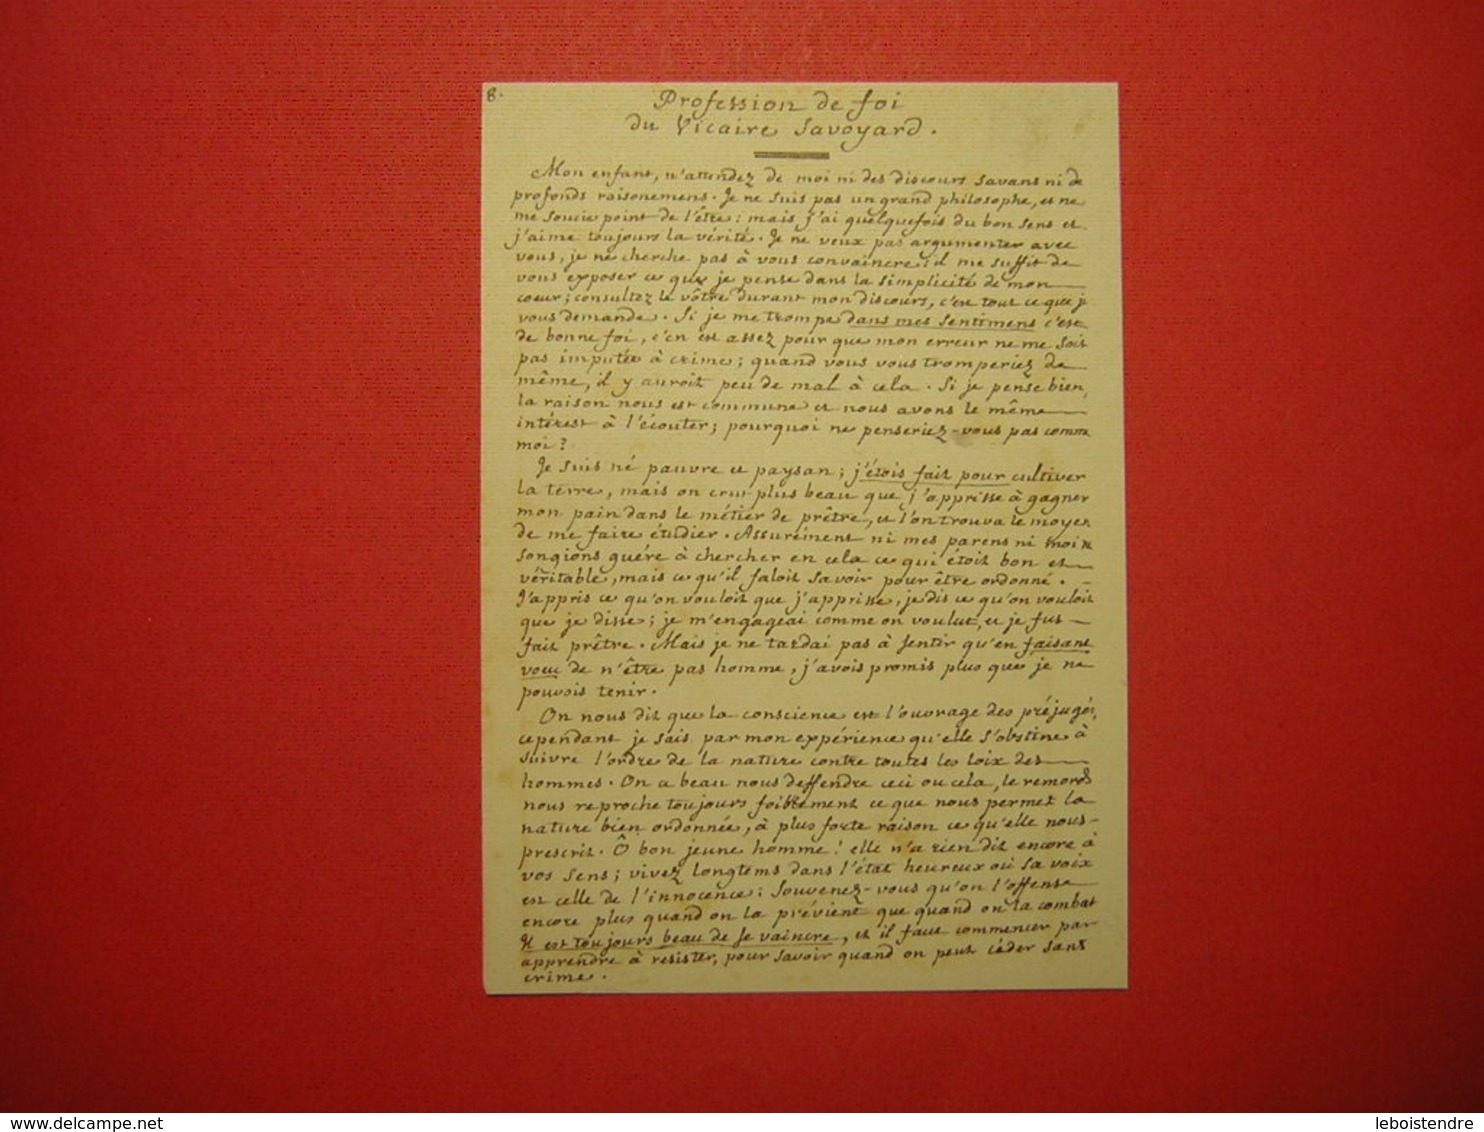 8.
Profession de foi
du Vicaire Savoyard.
Mon enfant, n'attendez de moi ni des discours savans ni de
profonds raisonemens. Je ne suis pas un grand philosophe, et ne
me soucie point de l'être: mais j'ai quelquefois du bon sens et
j'aime toujours la vérité. Je ne veux pas argumenter avec
vous, je ne cherche pas à vous convaincre; il me suffit de
vous exposer ce que je pense dans la simplicité de mon
coeur; consultez le vôtre durant mon discours, c'en tout ce que j
vous demande. Si je me trompe dans mes sentimens c'est
de bonne foi, c'en est assez pour que mon erreur ne me soit
pas imputée à crime; quand vous vous tromperiez de
même, il y auroit peu de mal à cela. Si je pense bien,
la raison nous est commune et nous avons le même
intérest à l'écouter; pourquoi ne penseriez-vous pas comme
moi?
Je suis né pauvre et paysan; j'étois fait pour cultiver
la terre, mais on crut plus beau que j'apprisse à gagner
mon pain dans le métier de prêtre, et l'on trouva le moyen
de me faire étudier. Assurément ni mes parens ni moi ne
songions guére à chercher en cela ce qui étoit bon et
véritable, mais ce qu'il faloit savoir pour être ordonné.
J'appris ce qu'on vouloit que j'apprisse, je dis ce qu'on vouloit
que je disse; je m'engageai comme on voulut, et je fus
fait prêtre. Mais je ne tardai pas à sentir qu'en faisant
voeu de n'être pas homme, j'avois promis plus que je ne
pouvois tenir.
On nous dit que la conscience est l'ouvrage des préjugés,
cependant je sais par mon expérience qu'elle s'obstine à
suivre l'ordre de la nature contre toutes les loix des
hommes. On a beau nous deffendre ceci ou cela, le remords
nous reproche toujours foiblement ce que nous permet la
nature bien ordonnée, à plus forte raison ce qu'elle nous
prescrit. Ô bon jeune homme! elle n'a rien dit encore à
vos sens; vivez longtems dans l'état heureux où sa voix
est celle de l'innocence: Souvenez-vous qu'on l'offense
encore plus quand on la prévient que quand on la combat
Il est toujours beau de se vaincre, et il faut commencer par
apprendre à resister, pour savoir quand on peut céder sans
crime.
www.delcampe.net
leboistendre